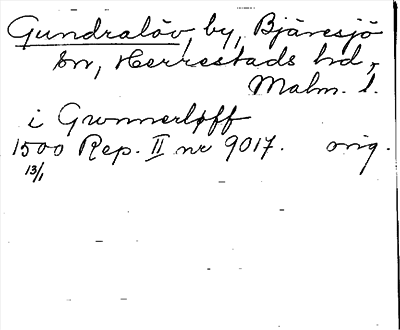 Gundralöv, by, Bjäresjö
sn, Herrestads hd,
Malm. l.
i Gwnnerløff
1500 Rep. II nr 9017. orig.
13/1